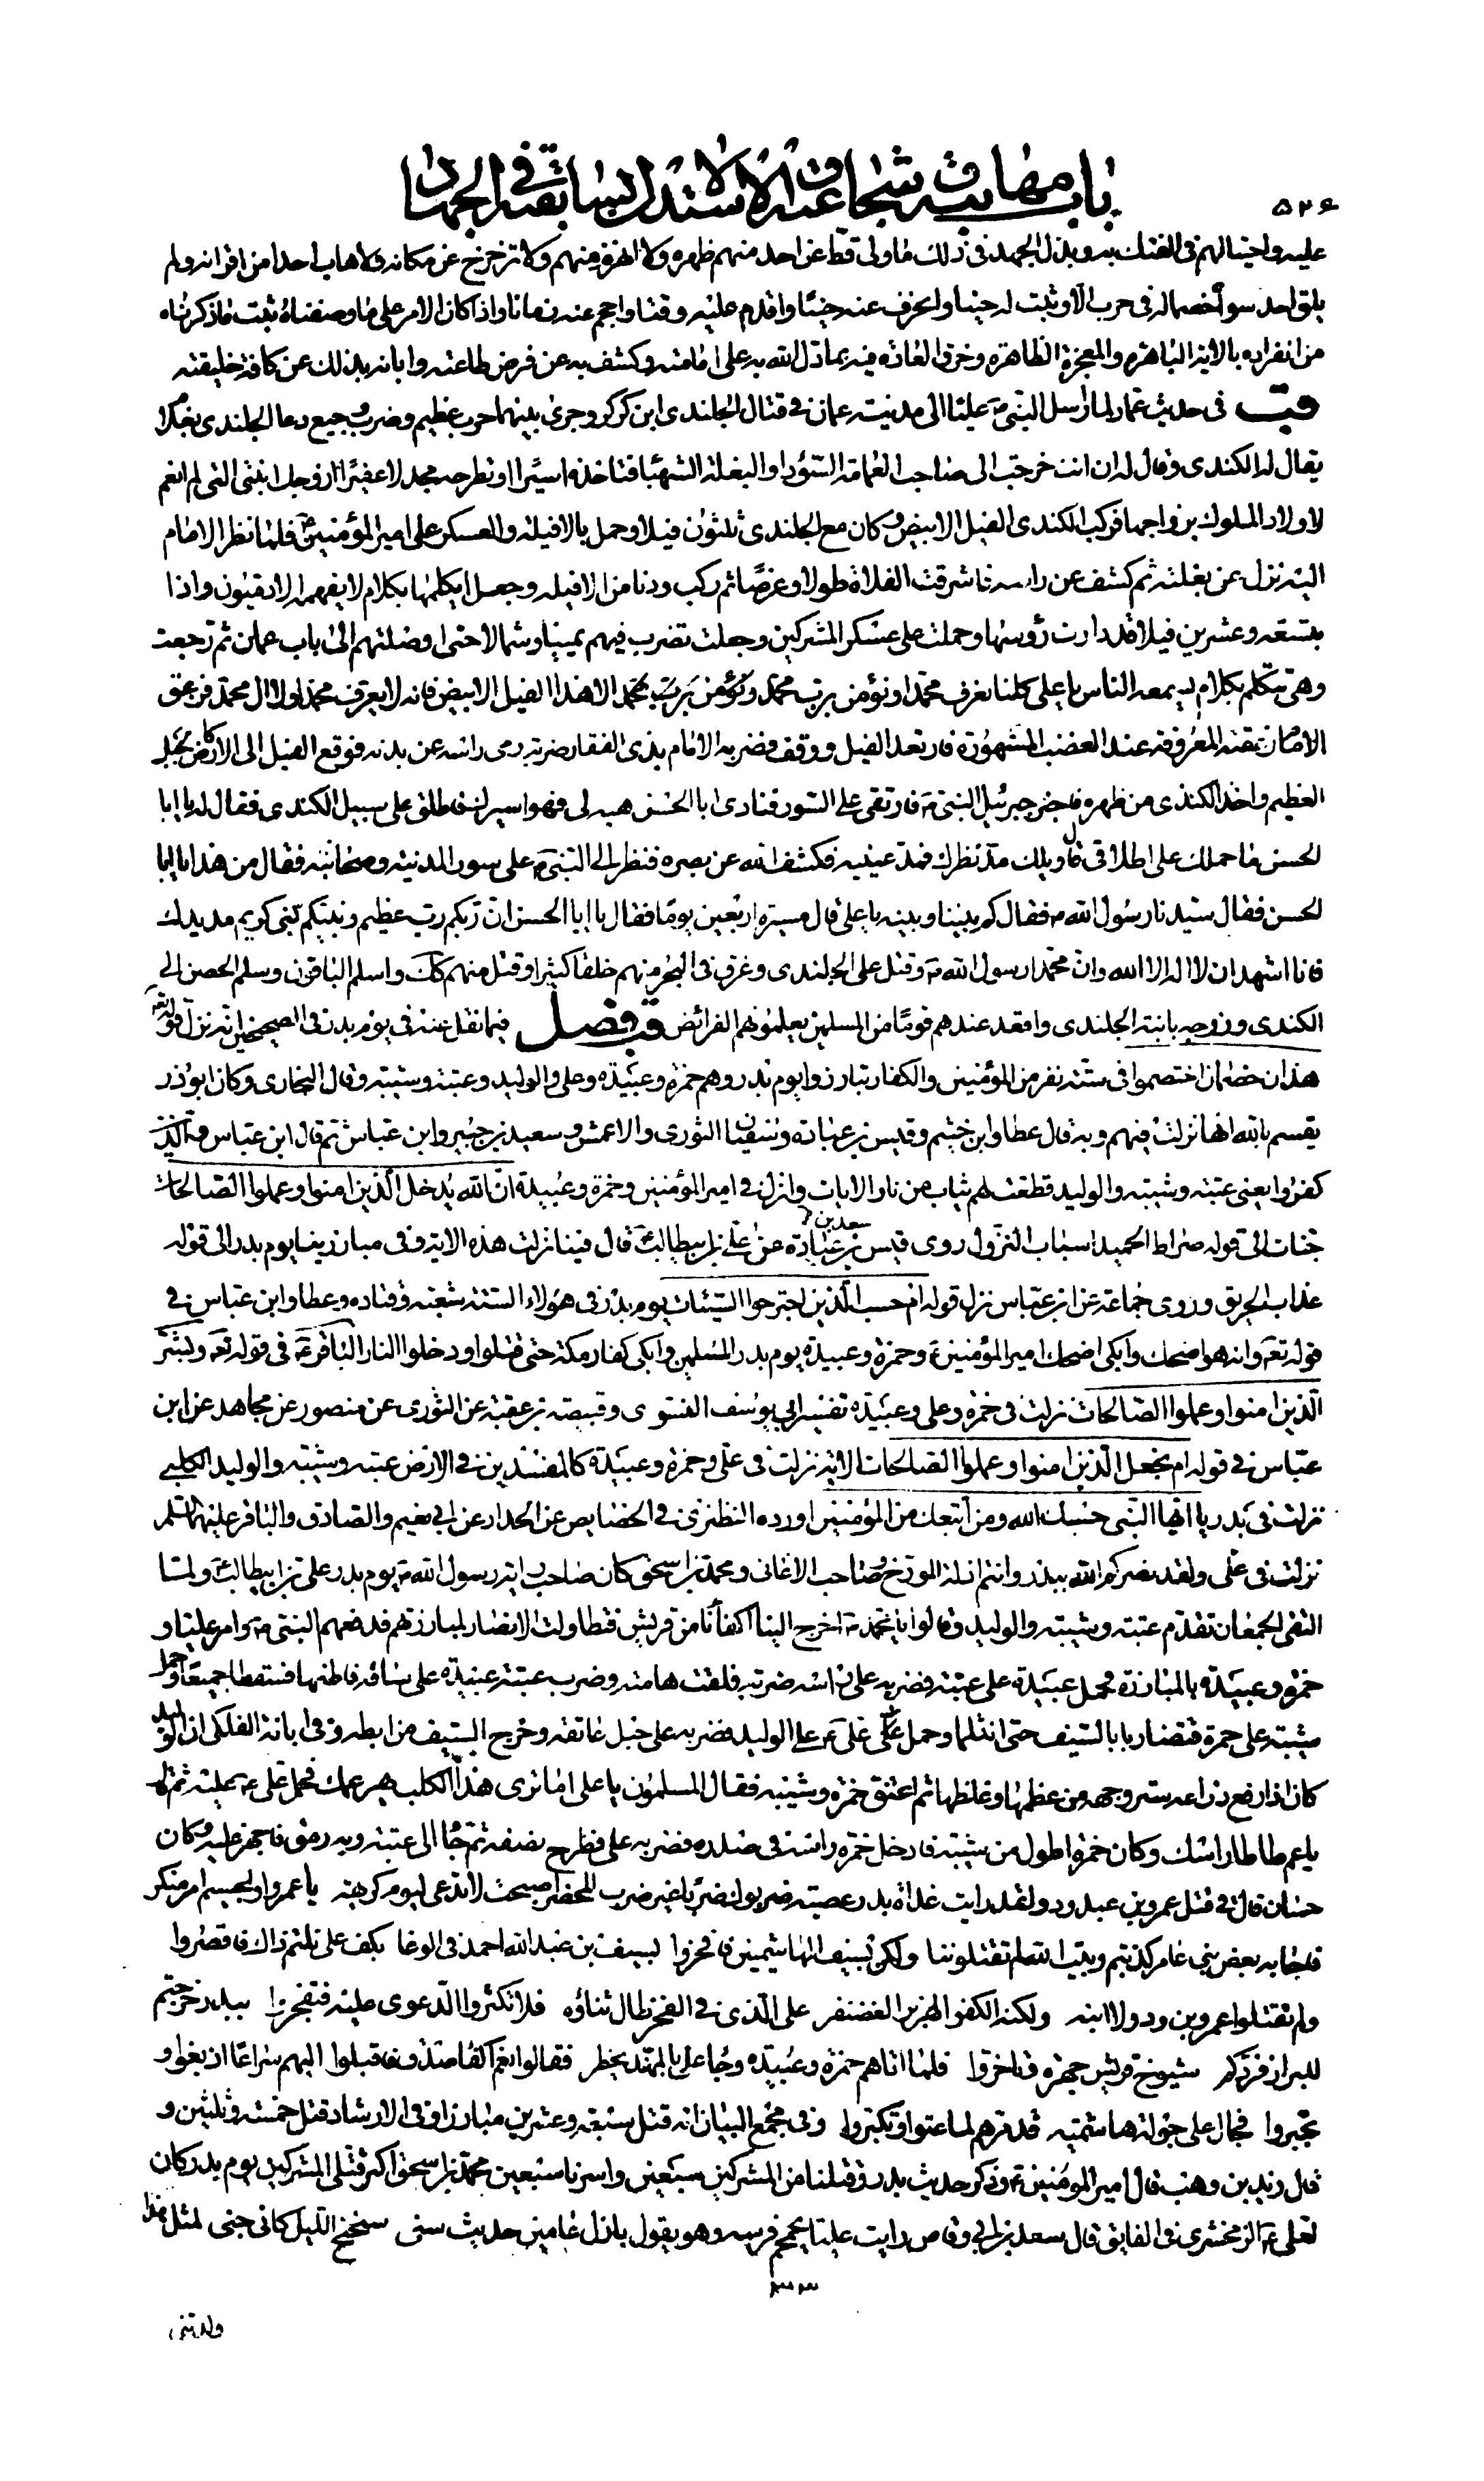 باب مهابته وشجاعته والاستدلال بسابقته في الجهاد
٥٢٤
عليه واحتيالهم في الفتك به وبذل الجهد في ذلك ما ولى قط عن احد منهم ظهره ولا انهزم منهم ولا تزحزح عن مكانه ولا هاب احدا من اقرانه ولم
يلق احد سواه خصما له في حرب الا وثبت له حينا وانحرف عنه حينا واقدم عليه وقتا واحجم عنه زمانا واذا كان الامر على ما وصفناه ثبت ما ذكرناه
من انفراده بالاية الباهرة والمعجزة الظاهرة وخرق العادة فيه بما دل الله به على امامته وكشف به عن فرض طاعته وابانه بذلك عن كافة خليقته
قب في حديث عمار لما ارسل النبي ص عليا الى مدينة عمان في قتال الجلندى ابن كركر وجرى بينهما حرب عظيم وضرب وجيع دعا الجلندى بغلام
يقال له الكندى وقال له ان انت خرجت الى صاحب العمامة السوداء والبغلة الشهباء فتاخذه اسيرا او تطرحه مجدلا عفيرا ازوجك ابنتي التي لم انعم
لاولاد الملوك بزواجها فركب الكندى الفيل الابيض وكان مع الجلندى ثلثون فيلا وحمل بالافيلة والعسكر على امير المؤمنين ع فلما نظر الامام
اليه نزل عن بغلته ثم كشف عن راسه فاشرقت الفلاة طولا وعرضا ثم ركب ودنا من الافيلة وجعل يكلمها بكلام لا يفهمه الادميون واذا
بتسعة وعشرين فيلا قد دارت رؤسها وحملت على عسكر المشركين وجعلت تضرب فيهم يمينا وشمالا حتى اوصلتهم الى باب عمان ثم رجعت
وهي تتكلم بكلام يسمعه الناس يا علي كلنا نعرف محمدا ونؤمن برب محمد الا هذا الفيل الابيض فانه لا يعرف محمدا ولا ال محمد فزعق
الامام زعقته المعروفة عند الغضب المشهورة فارتعد الفيل ووقف فضربه الامام بذي الفقار ضربة رمى راسه عن بدنه فوقع الفيل الى الارض كالجبل
العظيم واخذ الكندى من ظهره فاخبر جبرئيل النبي ص فارتقى على السور فنادى ابا الحسن هبه لي فهو اسيرك فاطلق علي سبيل الكندى فقال له يا ابا
الحسن ما حملك على اطلاقي قال ويلك مد نظرك فمد عينيه فكشف الله عن بصره فنظر الى النبي ص على سور المدينة وصحابته فقال من هذا يا ابا
الحسن فقال سيدنا رسول الله ص فقال كم بيننا وبينه يا علي قال مسيرة اربعين يوما فقال يا ابا الحسن ان ربكم رب عظيم ونبيكم نبي كريم مد يدك
فانا اشهد ان لا اله الا الله وان محمدا رسول الله ص وقتل علي الجلندى وغرق في البحر منهم خلقا كثيرا وقتل منهم كذلك واسلم الباقون وسلم الحصن الى
الكندى وزوجه بابنة الجلندى واقعد عندهم قوما من المسلمين يعلمونهم الفرائض قب فصل فيما نقل عنه في يوم بدر في الصحيحين انه نزل قوله تعالى
هذان خصمان اختصموا في ستة نفر من المؤمنين والكفار تبارزوا يوم بدر وهم حمزة وعبيدة وعلي والوليد وعتبة وشيبة وقال البخاري وكان ابو ذر
يقسم بالله انها نزلت فيهم وبه قال عطا وابن خثيم وقيس بن عبادة وسفيان الثوري والاعمش وسعيد بن جبير وابن عباس ثم قال ابن عباس فالذين
كفروا يعني عتبة وشيبة والوليد قطعت لهم ثياب من نار الايات وانزل في امير المؤمنين وحمزة وعبيدة ان الله يدخل الذين امنوا وعملوا الصالحات
جنات الى قوله صراط الحميد اسباب النزول روى قيس بن سعد بن عبادة عن علي بن ابيطالب ع قال فينا نزلت هذه الاية وفي مبارزينا يوم بدر الى قوله
عذاب الحريق وروى جماعة عن ابن عباس نزل قوله ام حسب الذين اجترحوا السيئات يوم بدر في هؤلاء الستة شعبة وقتادة وعطا وابن عباس في
قوله تعالى وانه هو اضحك وابكى اضحك امير المؤمنين ع وحمزة وعبيدة يوم بدر المسلمين وابكى كفار مكة حتى قتلوا ودخلوا النار الباقر ع في قوله تعالى وبشر
الذين امنوا وعملوا الصالحات نزلت في حمزة وعلي وعبيدة تفسير ابي يوسف الفسوى وقبيصة بن عقبة عن الثوري عن منصور عن مجاهد عن ابن
عباس في قوله ام نجعل الذين امنوا وعملوا الصالحات الاية نزلت في علي وحمزة وعبيدة كالمفسدين في الارض عتبة وشيبة والوليد الكلبي
نزلت في بدر يا ايها النبي حسبك الله ومن اتبعك من المؤمنين اورده النطنزي في الخصايص عن الحداد عن ابي نعيم والصادق والباقر عليهما السلام
نزلت في علي ولقد نصركم الله ببدر وانتم اذلة المورخ وصاحب الاغاني ومحمد بن اسحق كان صاحب راية رسول الله ص يوم بدر علي بن ابيطالب ع ولما
التقى الجمعان تقدم عتبة وشيبة والوليد وقالوا يا محمد ص اخرج الينا اكفانا من قريش فتطاولت الانصار لمبارزتهم فدفعهم النبي ص وامر عليا و
حمزة وعبيدة بالمبارزة فحمل عبيدة على عتبة فضربه على راسه ضربة فلقت هامته وضرب عتبة عبيدة على ساقه فاطنها فسقطا جميعا وحمل
شيبة على حمزة فتضاربا بالسيف حتى انثلما وحمل علي ع على الوليد فضربه على حبل عاتقه وخرج السيف من ابطه وفي ابانة الفلكي ان الوليد
كان اذا رفع ذراعه ستر وجهه من عظمها وغلظها ثم اعتنق حمزة وشيبة فقال المسلمون يا علي اما ترى هذا الكلب يهر عمك فحمل علي ع عليه ثم قال
يا عم طاطا راسك وكان حمزة اطول من شيبة فادخل حمزة راسه في صدره فضربه علي فطرح نصفه ثم جاء الى عتبة وبه رمق فاجهز عليه وكان
حسان قال في قتل عمرو بن عبد ود ولقد رايت غداة بدر عصبة ضربوك ضربا غير ضرب المحضر اصبحت لا تدعى ليوم كريهة يا عمرو او لجسيم امر منكر
فاجابه بعض بني عامر كذبتم وبيت الله لم تقتلوننا ولكن بسيف الهاشميين فافخروا بسيف بن عبد الله احمد في الوغا بكف علي نلتم ذاك فاقصروا
ولم تقتلوا عمرو بن ود ولا ابنه ولكنه الكفو الهزبر الغضنفر علي الذي في الفخر طال ثناؤه فلا تكثروا الدعوى عليه فتفجروا ببدر خرجتم
للبراز فردكم شيوخ قريش جهرة وتاخروا فلما اتاهم حمزة وعبيدة وجاء علي بالمهند يخطر فقالوا نعم اكفاء صدق فاقبلوا اليهم سراعا اذ بغوا و
تجبروا فجال علي جولة هاشمية فدمرهم لما عتوا وتكبروا وفي مجمع البيان انه قتل سبعة وعشرين مبارزا وفي الارشاد قتل خمسة وثلثين و
قال زيد بن وهب قال امير المؤمنين ع وذكر حديث بدر وقتلنا من المشركين سبعين واسرنا سبعين محمد بن اسحق اكثر قتلى المشركين يوم بدر كان
لعلي ع الزمخشري في الفايق قال سعد بن ابي وقاص رايت عليا يحمحم فرسه وهو يقول بازل عامين حديث سني سنحنح الليل كاني جني لمثل هذا
ولدتني